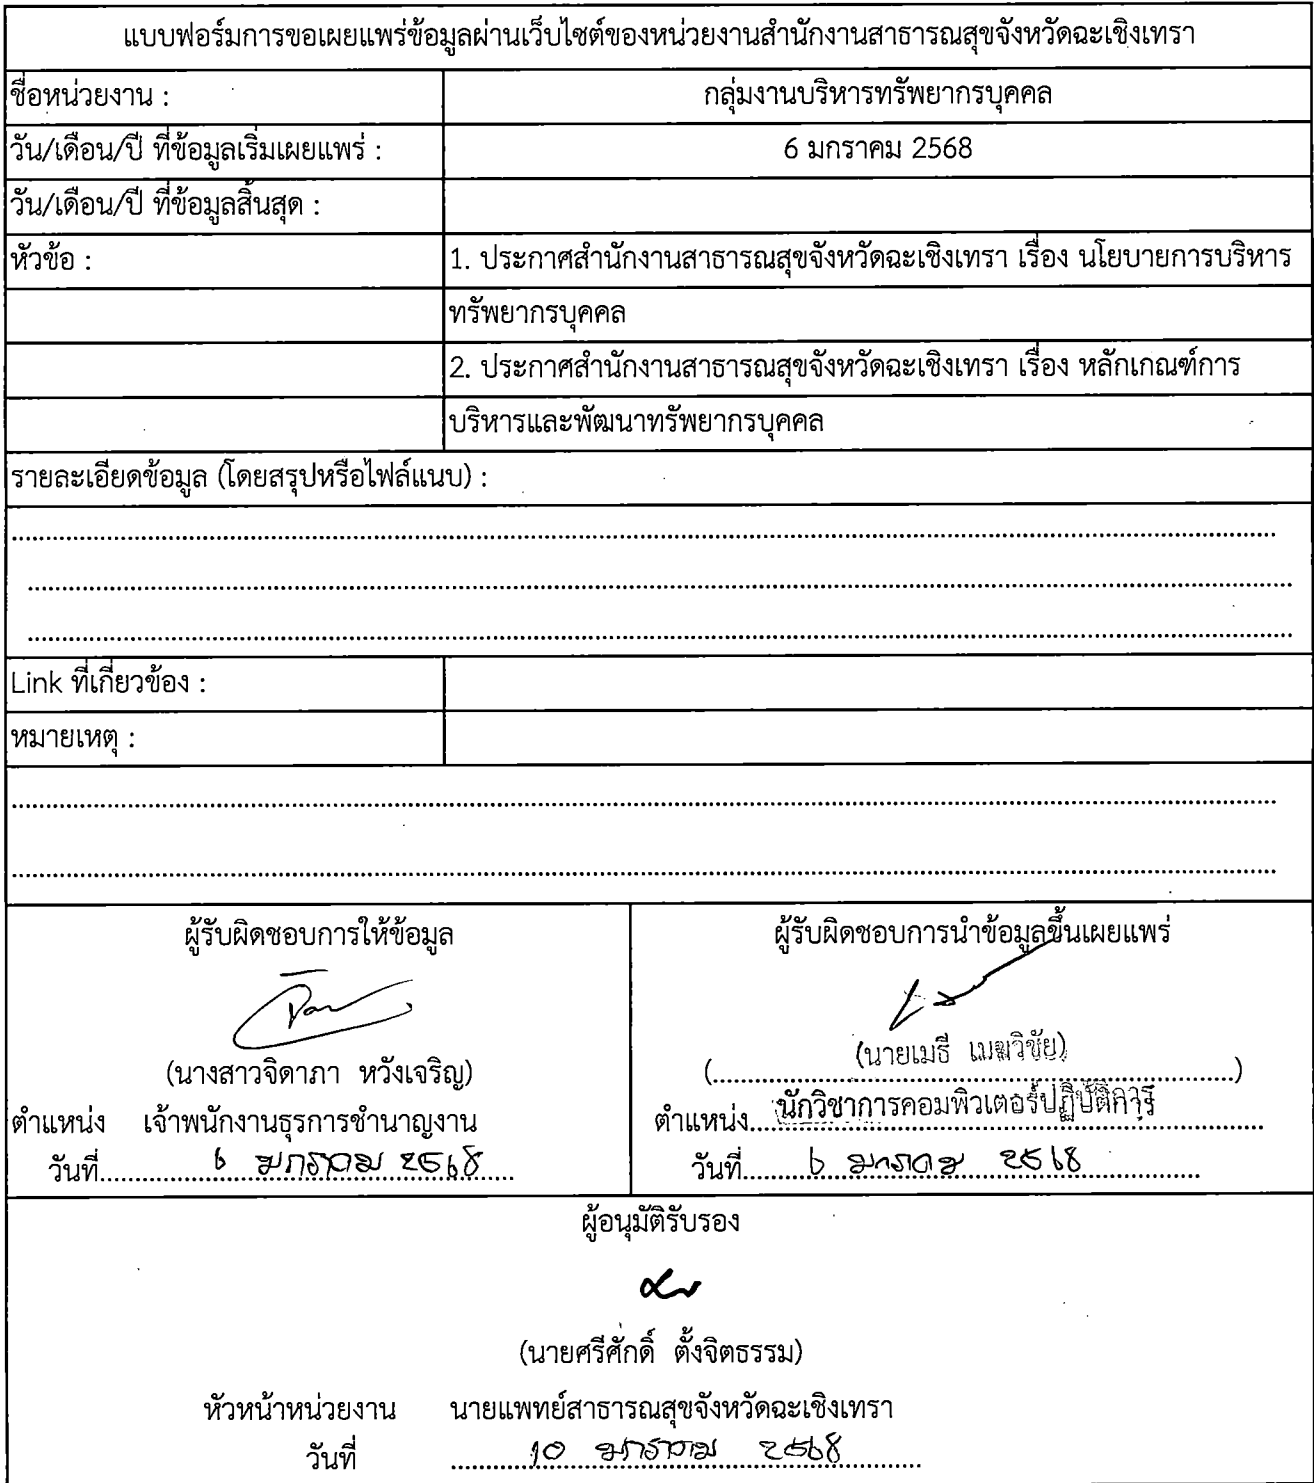 แบบฟอร์มการขอเผยแพร่ข้อมูลผ่านเว็บไซต์ของหน่วยงานสำนักงานสาธารณสุขจังหวัดฉะเชิงเทรา
ชื่อหน่วยงาน : กลุ่มงานบริหารทรัพยากรบุคคล
วัน/เดือน/ปี ที่ข้อมูลเริ่มเผยแพร่ : 6 มกราคม 2568
วัน/เดือน/ปี ที่ข้อมูลสิ้นสุด :
หัวข้อ : 1. ประกาศสำนักงานสาธารณสุขจังหวัดฉะเชิงเทรา เรื่อง นโยบายการบริหาร
ทรัพยากรบุคคล
2. ประกาศสำนักงานสาธารณสุขจังหวัดฉะเชิงเทรา เรื่อง หลักเกณฑ์การ
บริหารและพัฒนาทรัพยากรบุคคล
รายละเอียดข้อมูล (โดยสรุปหรือไฟล์แนบ) :
Link ที่เกี่ยวข้อง :
หมายเหตุ :
ผู้รับผิดชอบการให้ข้อมูล
(นางสาวจิดาภา หวังเจริญ)
ตำแหน่ง เจ้าพนักงานธุรการชำนาญงาน
วันที่ ๖ มกราคม ๒๕๖๘
ผู้รับผิดชอบการนำข้อมูลขึ้นเผยแพร่
(นายเมธี เมฆวิชัย)
ตำแหน่ง นักวิชาการคอมพิวเตอร์ปฏิบัติการ
วันที่ ๖ มกราคม ๒๕๖๘
ผู้อนุมัติรับรอง
(นายศรีศักดิ์ ตั้งจิตธรรม)
หัวหน้าหน่วยงาน นายแพทย์สาธารณสุขจังหวัดฉะเชิงเทรา
วันที่ 10 มกราคม 2568